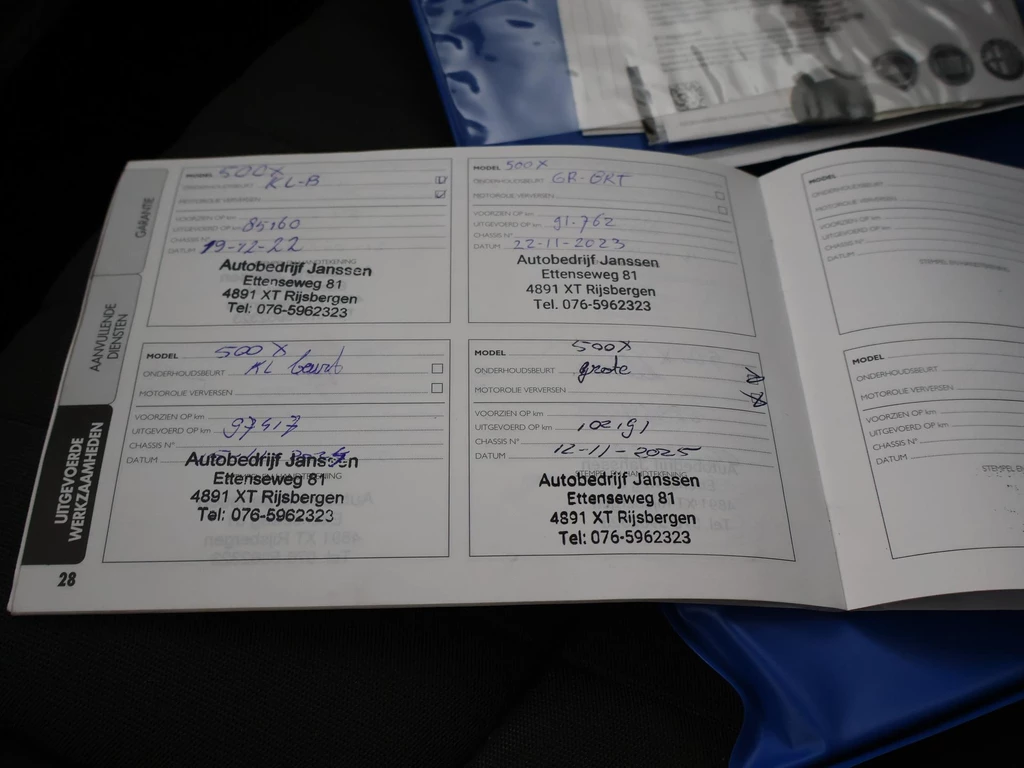 GARANTIE
AANVULLENDE
DIENSTEN
UITGEVOERDE
WERKZAAMHEDEN
28
MODEL 500X
ONDERHOUDSBEURT KL-B
MOTOROLIE VERVERSEN
VOORZIEN OP km
UITGEVOERD OP km 85160
CHASSIS N°
DATUM 19-12-22
Autobedrijf Janssen
Ettenseweg 81
4891 XT Rijsbergen
Tel: 076-5962323
MODEL 500X
ONDERHOUDSBEURT GR-BRT
MOTOROLIE VERVERSEN
VOORZIEN OP km
UITGEVOERD OP km 91.762
CHASSIS N°
DATUM 22-11-2023
Autobedrijf Janssen
Ettenseweg 81
4891 XT Rijsbergen
Tel: 076-5962323
MODEL 500X
ONDERHOUDSBEURT KL beurt
MOTOROLIE VERVERSEN
VOORZIEN OP km
UITGEVOERD OP km 97417
CHASSIS N°
DATUM
Autobedrijf Janssen
Ettenseweg 81
4891 XT Rijsbergen
Tel: 076-5962323
MODEL 500X
ONDERHOUDSBEURT grote
MOTOROLIE VERVERSEN
VOORZIEN OP km
UITGEVOERD OP km 102191
CHASSIS N°
DATUM 12-11-2025
STEMPEL EN HANDTEKENING
Autobedrijf Janssen
Ettenseweg 81
4891 XT Rijsbergen
Tel: 076-5962323
MODEL
ONDERHOUDSBEURT
MOTOROLIE VERVERSEN
VOORZIEN OP km
UITGEVOERD OP km
CHASSIS N°
DATUM
STEMPEL EN HANDTEKENING
MODEL
ONDERHOUDSBEURT
MOTOROLIE VERVERSEN
VOORZIEN OP km
UITGEVOERD OP km
CHASSIS N°
DATUM
STEMPEL EN